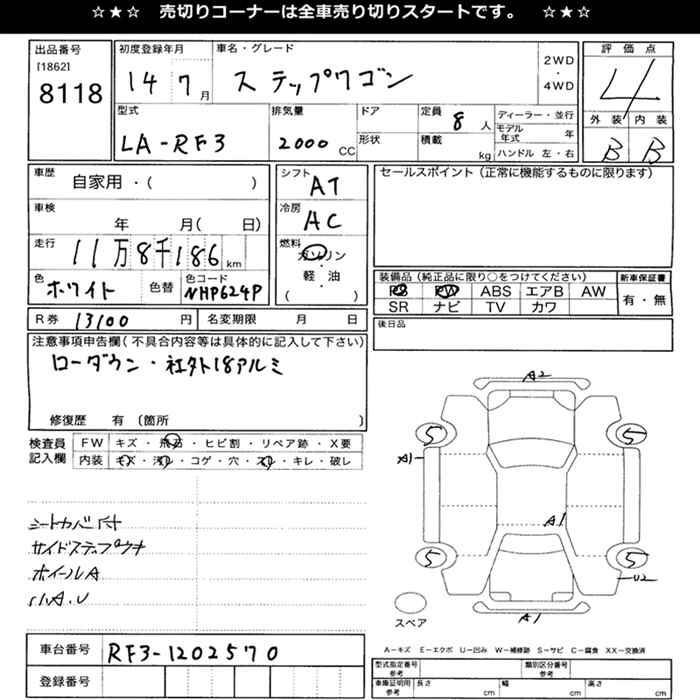 ☆★☆ 売切りコーナーは全車売り切りスタートです。 ☆★☆
出品番号
[1862]
8118
初度登録年月
14 7月
車名・グレード
ステップワゴン
2WD
・
4WD
評価点
4
外装 内装
B B
型式
LA-RF3
排気量
2000cc
ドア
形状
定員
8人
積載
kg
ディーラー・並行
モデル年式 年
ハンドル 左・右
車歴
自家用・( )
車検
年 月( 日)
走行
11万8千186km
色
ホワイト
色替
色コード
NHP624P
シフト
AT
冷房
AC
燃料
ガソリン
・
軽・油
( )
セールスポイント(正常に機能するものに限ります)
装備品(純正品に限り○をつけてください)
PS PW ABS エアB AW
SR ナビ TV カワ
新車保証書
有・無
R券 13100円
名変期限 月 日
後日品
注意事項申告欄(不具合内容等は具体的に記入して下さい)
ローダウン・社外18アルミ
修復歴 有 〔箇所 〕
検査員
記入欄
FW キズ・飛石・ヒビ割・リペア跡・X要
内装 キズ・汚れ・コゲ・穴・スレ・キレ・破レ
シートカバー付
サイドステップウキ
ホイールA
小A.U
A2
5 5
A1
A1
5 5
U2
A1
スペア
A−キズ E−エクボ U−凹み W−補修跡 S−サビ C−腐食 XX−交換済
車台番号 RF3-1202570
登録番号
型式指定番号
参考
類別区分番号
参考
車庫証明用
参考
長さ cm 幅 cm 高さ cm